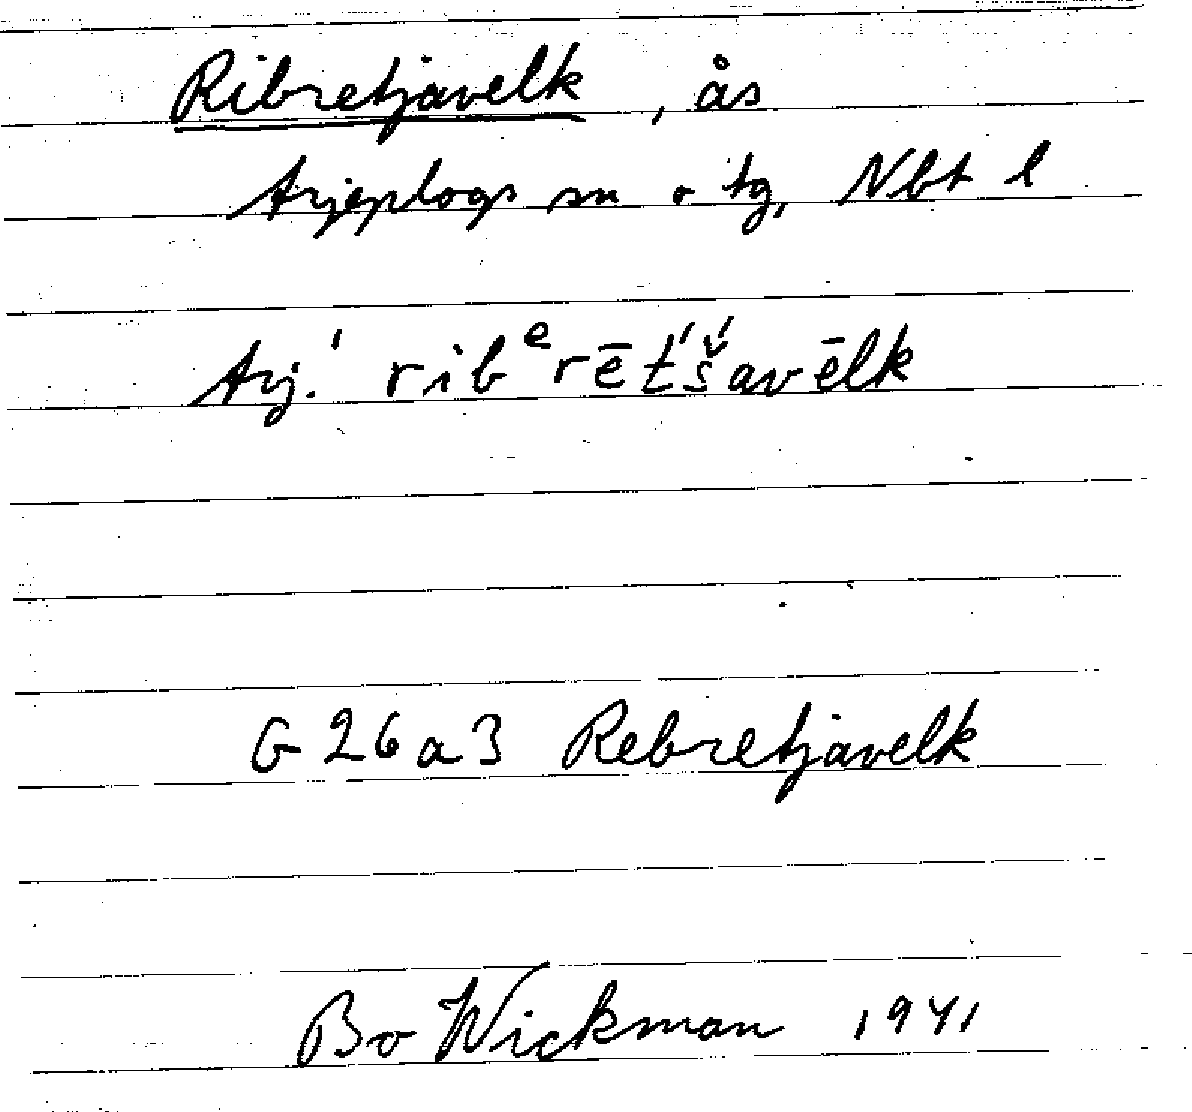 Ribretjavelk, ås
Arjeplogs sn o tg, Nbt l
Arj. ˈribᵉrēt́š́avēlk
G 26 a 3 Rebretjavelk
Bo Wickman 1941